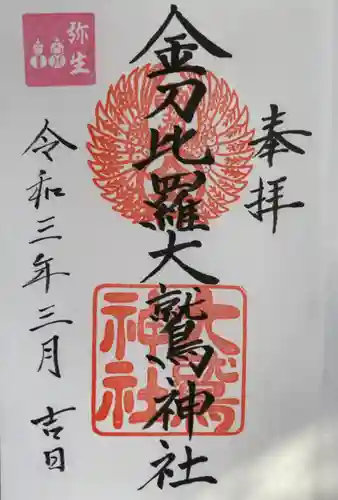 奉拝
金刀比羅大鷲神社
大鷲神社
令和三年三月 吉日
弥生